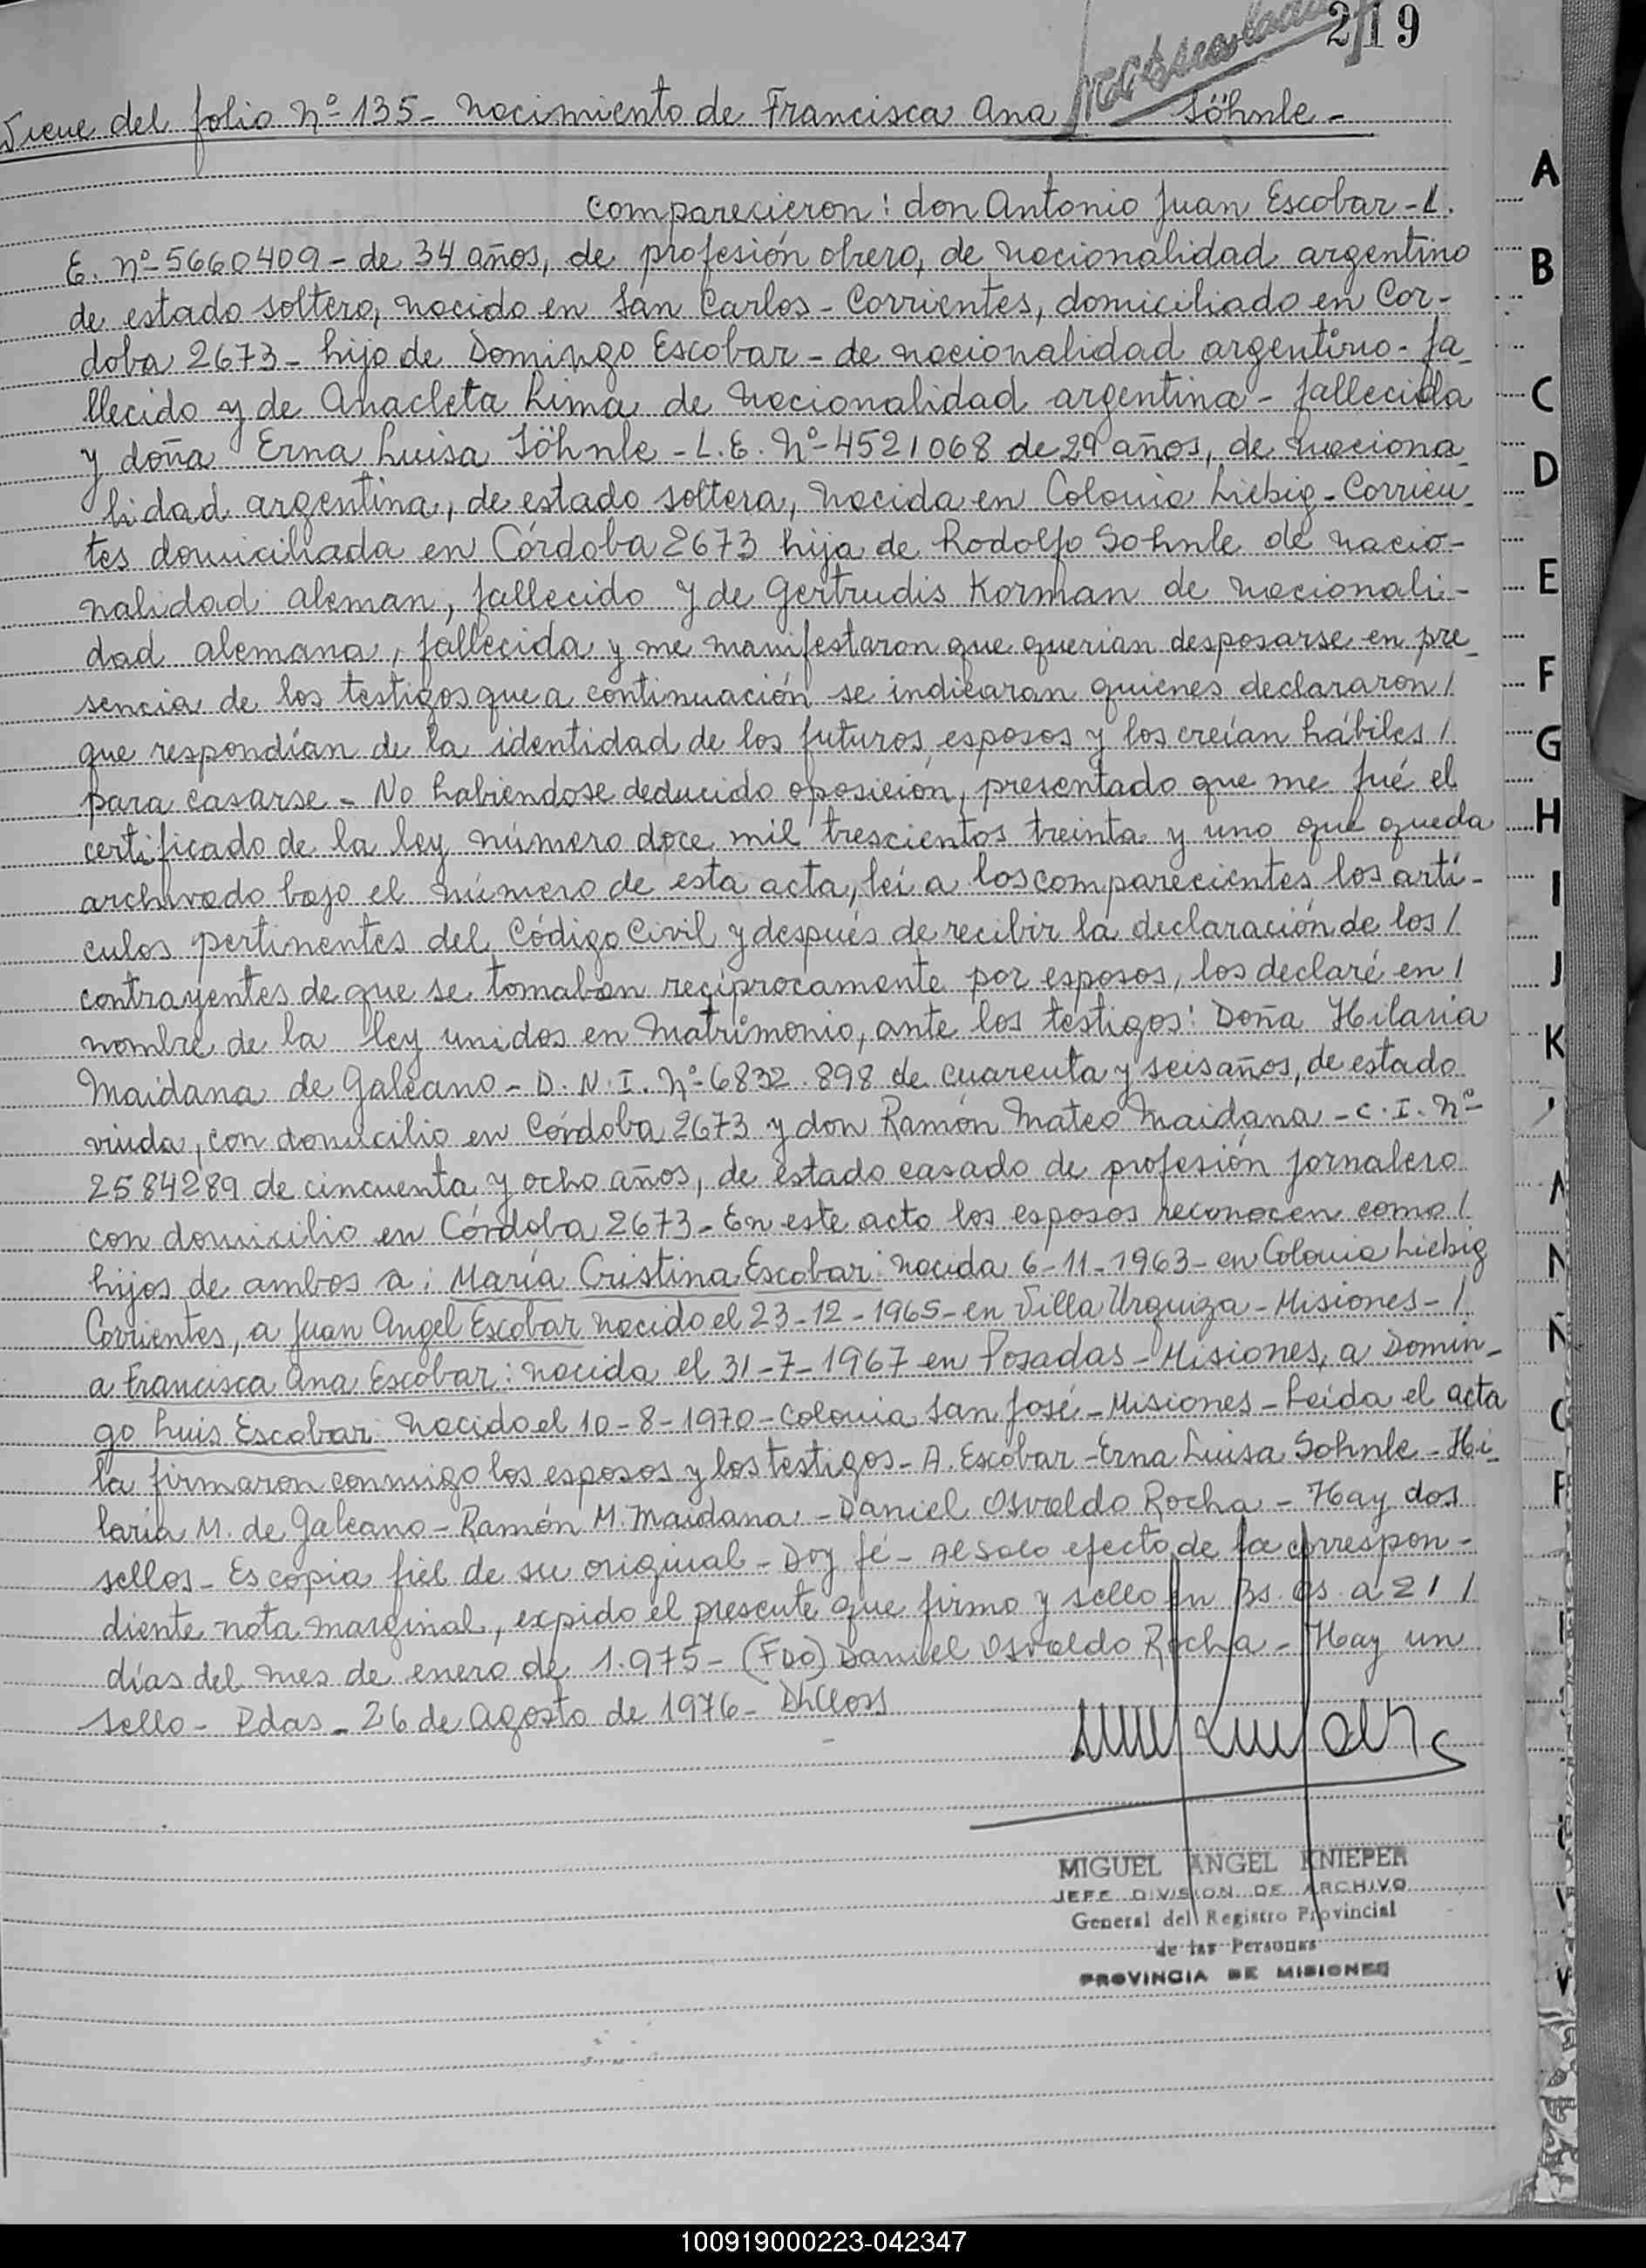 219
Viene del folio Nº 135 - Nacimiento de Francisca Ana Söhnle -
Comparecieron: don Antonio Juan Escobar - L.
E. Nº 5660409 - de 34 años, de profesión obrero, de nacionalidad argentino
de estado soltero, nacido en San Carlos - Corrientes, domiciliado en Cor-
doba 2673 - hijo de Domingo Escobar - de nacionalidad argentino - fa-
llecido y de Anacleta Lima de nacionalidad argentina - fallecida
y doña Erna Luisa Söhnle - L.E. Nº 4521068 de 29 años, de naciona-
lidad argentina, de estado soltera, nacida en Colonia Liebig - Corrien-
tes domiciliada en Córdoba 2673 hija de Rodolfo Sohnle de nacio-
nalidad aleman, fallecido y de Gertrudis Korman de nacionali-
dad alemana, fallecida y me manifestaron que querian desposarse en pre-
sencia de los testigos que a continuación se indicaran quienes declararon /
que respondían de la identidad de los futuros esposos y los creían hábiles /
para casarse - No habiendose deducido oposición, presentado que me fué el
certificado de la ley número doce mil trescientos treinta y uno que queda
archivado bajo el número de esta acta, leí a los comparecientes los artí-
culos pertinentes del Código Civil y después de recibir la declaración de los /
contrayentes de que se tomaban recíprocamente por esposos, los declaré en /
nombre de la ley unidos en Matrimonio, ante los testigos: Doña Hilaria
Maidana de Galeano - D.N.I. Nº 6832.898 de cuarenta y seis años, de estado
viuda, con domicilio en Córdoba 2673 y don Ramón Mateo Maidana - C.I. Nº
2584289 de cincuenta y ocho años, de estado casado de profesión jornalero
con domicilio en Córdoba 2673 - En este acto los esposos reconocen como /
hijos de ambos a: María Cristina Escobar: nacida 6-11-1963 - en Colonia Liebig
Corrientes, a Juan Angel Escobar nacido el 23-12-1965 - en Villa Urquiza - Misiones - /
a Francisca Ana Escobar: nacida el 31-7-1967 en Posadas - Misiones, a Domin-
go Luis Escobar nacido el 10-8-1970 - Colonia San José - Misiones - Leída el acta
la firmaron conmigo los esposos y los testigos - A. Escobar - Erna Luisa Sohnle - Hi-
laria M. de Galeano - Ramón M. Maidana - Daniel Osvaldo Rocha - Hay dos
sellos - Es copia fiel de su original - Doy fé - Al solo efecto de la correspon-
diente nota marginal, expido el presente que firmo y sello en Bs. As. a 21 /
días del mes de enero de 1.975 - (Fdo) Daniel Osvaldo Rocha - Hay un
sello - Pdas - 26 de Agosto de 1976 -
MIGUEL ANGEL KNIEPER
JEFE DIVISION DE ARCHIVO
General del Registro Provincial
de las Personas
PROVINCIA DE MISIONES
A
B
C
D
E
F
G
H
I
J
K
N
Ñ
100919000223-042347